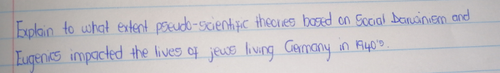 Explain to what extent pseudo-scientific theories based on Social Darwinism and
Eugenics impacted the lives of jews living Germany in 1940's.